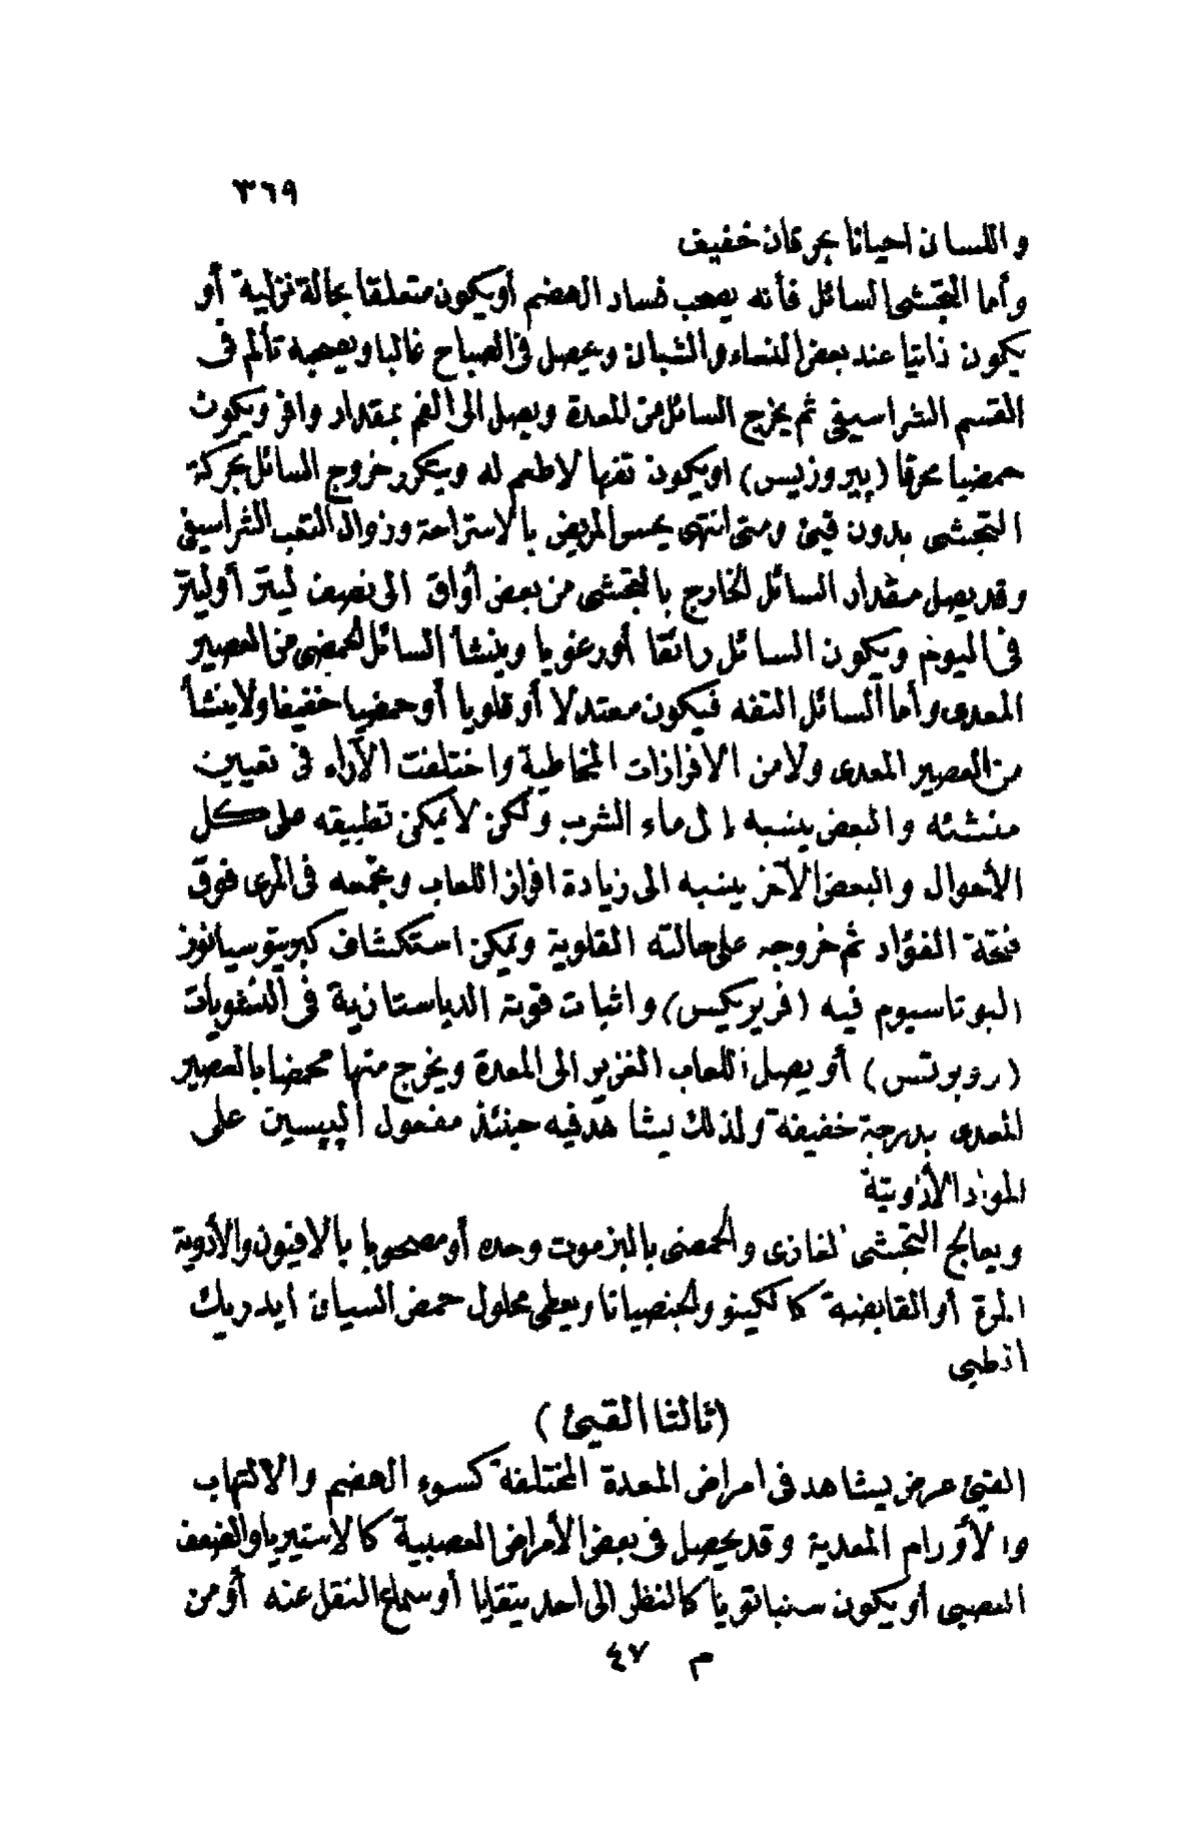 ٣٦٩
واللسان احيانا بحرقان خفيف
وأما التجشى السائل فأنه يصحب فساد الهضم أويكون متعلقا بحالة نزلية أو
يكون ذاتيا عند بعض النساء والشبان ويحصل فى الصباح غالبا ويصحبه تألم فى
القسم الشراسيفى ثم يخرج السائل من المعدة ويصل الى الفم بمقدار وافر ويكون
حمضيا محرقا (پيروزيس) اويكون تفها لاطعم له ويتكرر خروج السائل بحركة
التجشى بدون قيئ ومتى انتهى يحس المريض بالاستراحة وزوال التعب الشراسيفى
وقد يصل مقدار السائل الخارج بالتجشى من بعض أواق الى نصف ليتر أوليتر
فى اليوم ويكون السائل رائقا أورغويا وينشأ السائل الحمضى من العصير
المعدى وأما السائل التفه فيكون معتدلا أوقلويا أوحمضيا خفيفا ولاينشأ
من العصير المعدى ولا من الافرازات المخاطية واختلفت الآراء فى تعيين
منشئه والبعض ينسبه الى ماء الشرب ولكن لايمكن تطبيقه على كل
الأحوال والبعض الآخر ينسبه الى زيادة افراز اللعاب وتجمعه فى المرى فوق
فتحة الفؤاد ثم خروجه على حالته القلوية ويمكن استكشاف كبريتوسيانوز
البوتاسيوم فيه (فريريكيس) واثبات قوته الدياستازية فى النشويات
(روبرتس) أو يصل اللعاب الغزير الى المعدة ويخرج منها محمضا بالعصير
المعدى بدرجة خفيفة ولذلك يشاهد فيه حينئذ مفعول الپپسين على
المواد الأزوتية
ويعالج التجشى الغازى والحمضى بالبزموت وحده أومصحوبا بالافيون والأدوية
المرة أوالقابضة كالكينو والجنصيانا ويعطى محلول حمض السيان ايدريك
الطبى
(ثالثا القيئ)
القيئ عرض يشاهد فى امراض المعدة المختلفة كسوء الهضم والالتهاب
والأورام المعدية وقد يحصل فى بعض الأمراض العصبية كالاستيريا والضعف
العصبى أويكون سنباتويا كالنظر الى احد يتقايا أوسماع النقل عنه أومن
م ٤٧